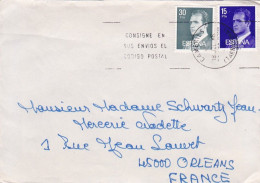 30
ESPAÑA
15
ESPAÑA
CONSIGNE EN
SUS ENVIOS EL
CODIGO POSTAL
Monsieur Madame Schwartz Jean
Mercerie
3 Rue Jean Lauvet
45000 ORLEANS
FRANCE